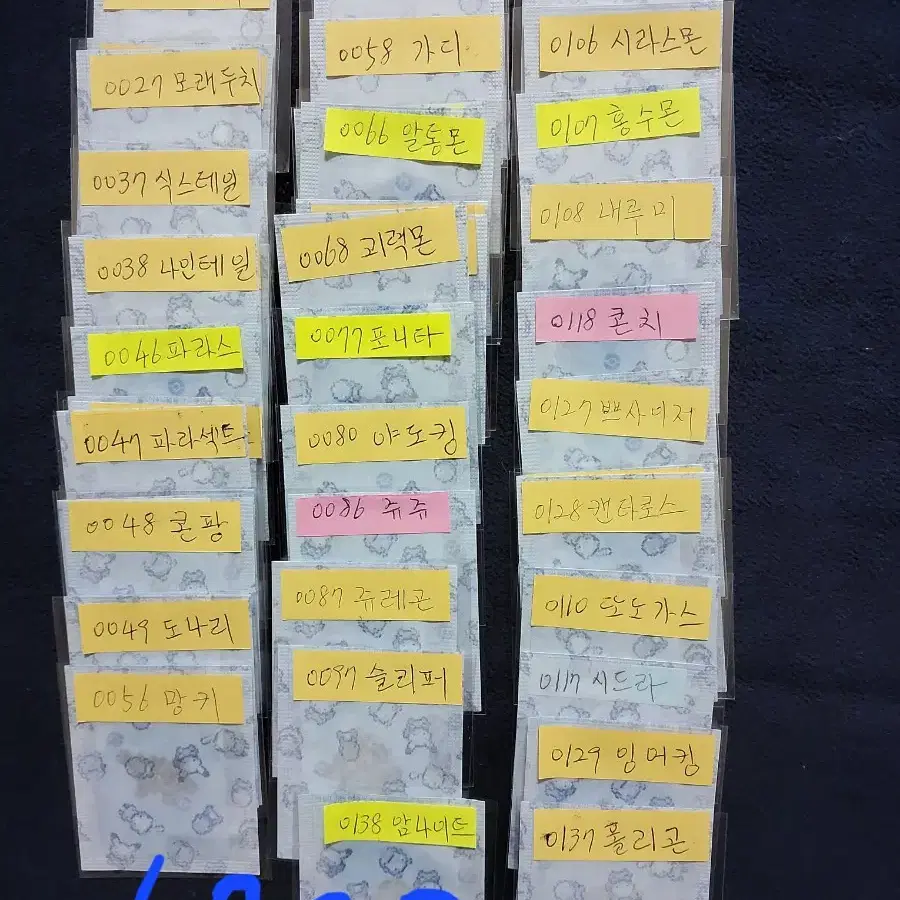 0027 모래두지
0037 식스테일
0038 나인테일
0046 파라스
0047 파라섹트
0048 콘팡
0049 도나리
0056 망키
0058 가디
0066 알통몬
0068 괴력몬
0077 포니타
0080 야도킹
0086 쥬쥬
0087 쥬레곤
0097 슬리퍼
0138 암나이트
0106 시라스몬
0107 홍수몬
0108 내루미
0118 콘치
0127 쁘사이저
0128 캔타로스
0110 또도가스
0117 시드라
0129 잉어킹
0137 폴리곤